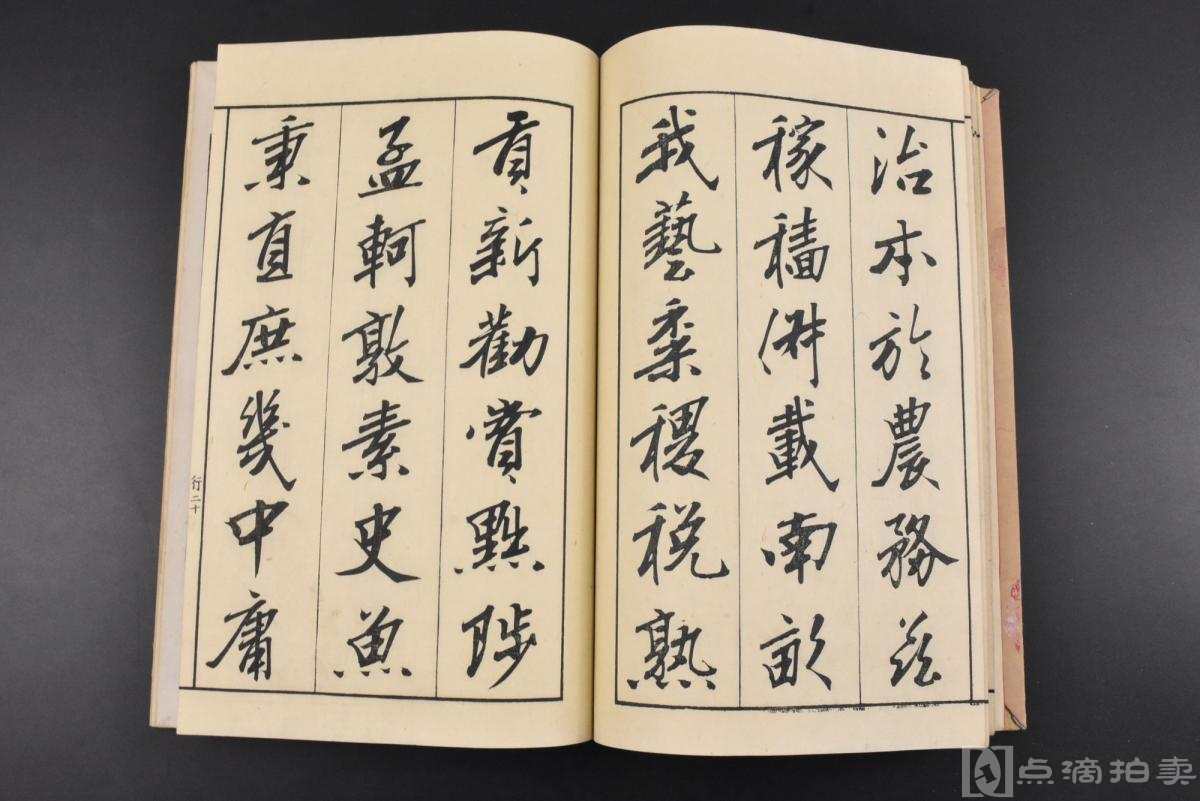 治本於農務茲
稼穡俶載南畝
我藝黍稷稅熟
貢新勸賞黜陟
孟軻敦素史魚
秉直庶幾中庸
行二十
点滴拍卖